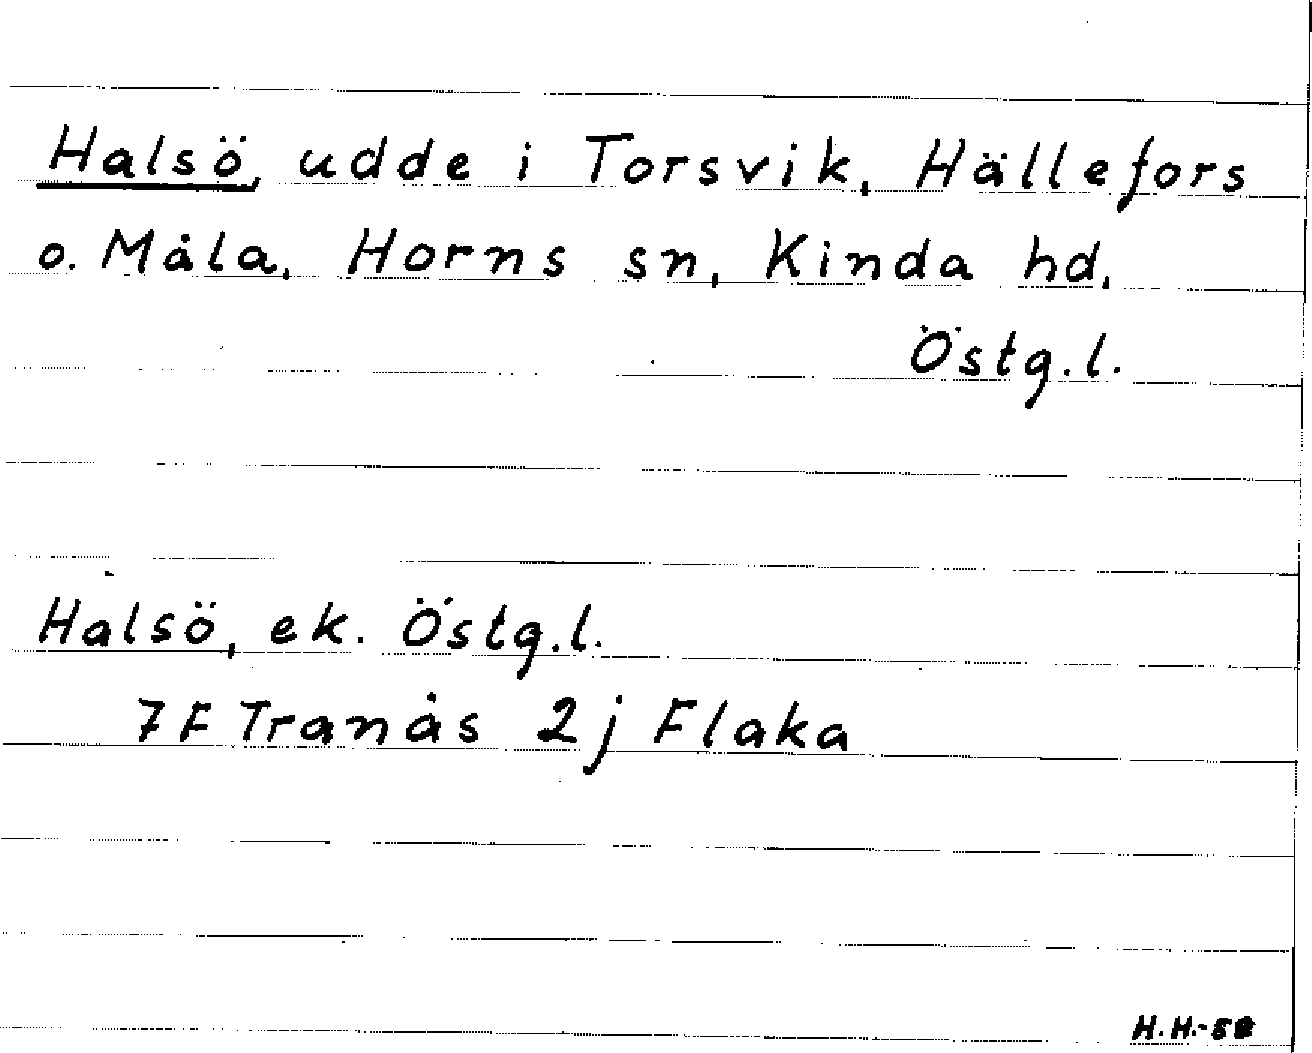 Halsö, udde i Torsvik, Hällefors
o. Måla, Horns sn, Kinda hd,
Östg.l.
Halsö, ek. Östg.l.
7F Tranås 2j Flaka
H.H.-58